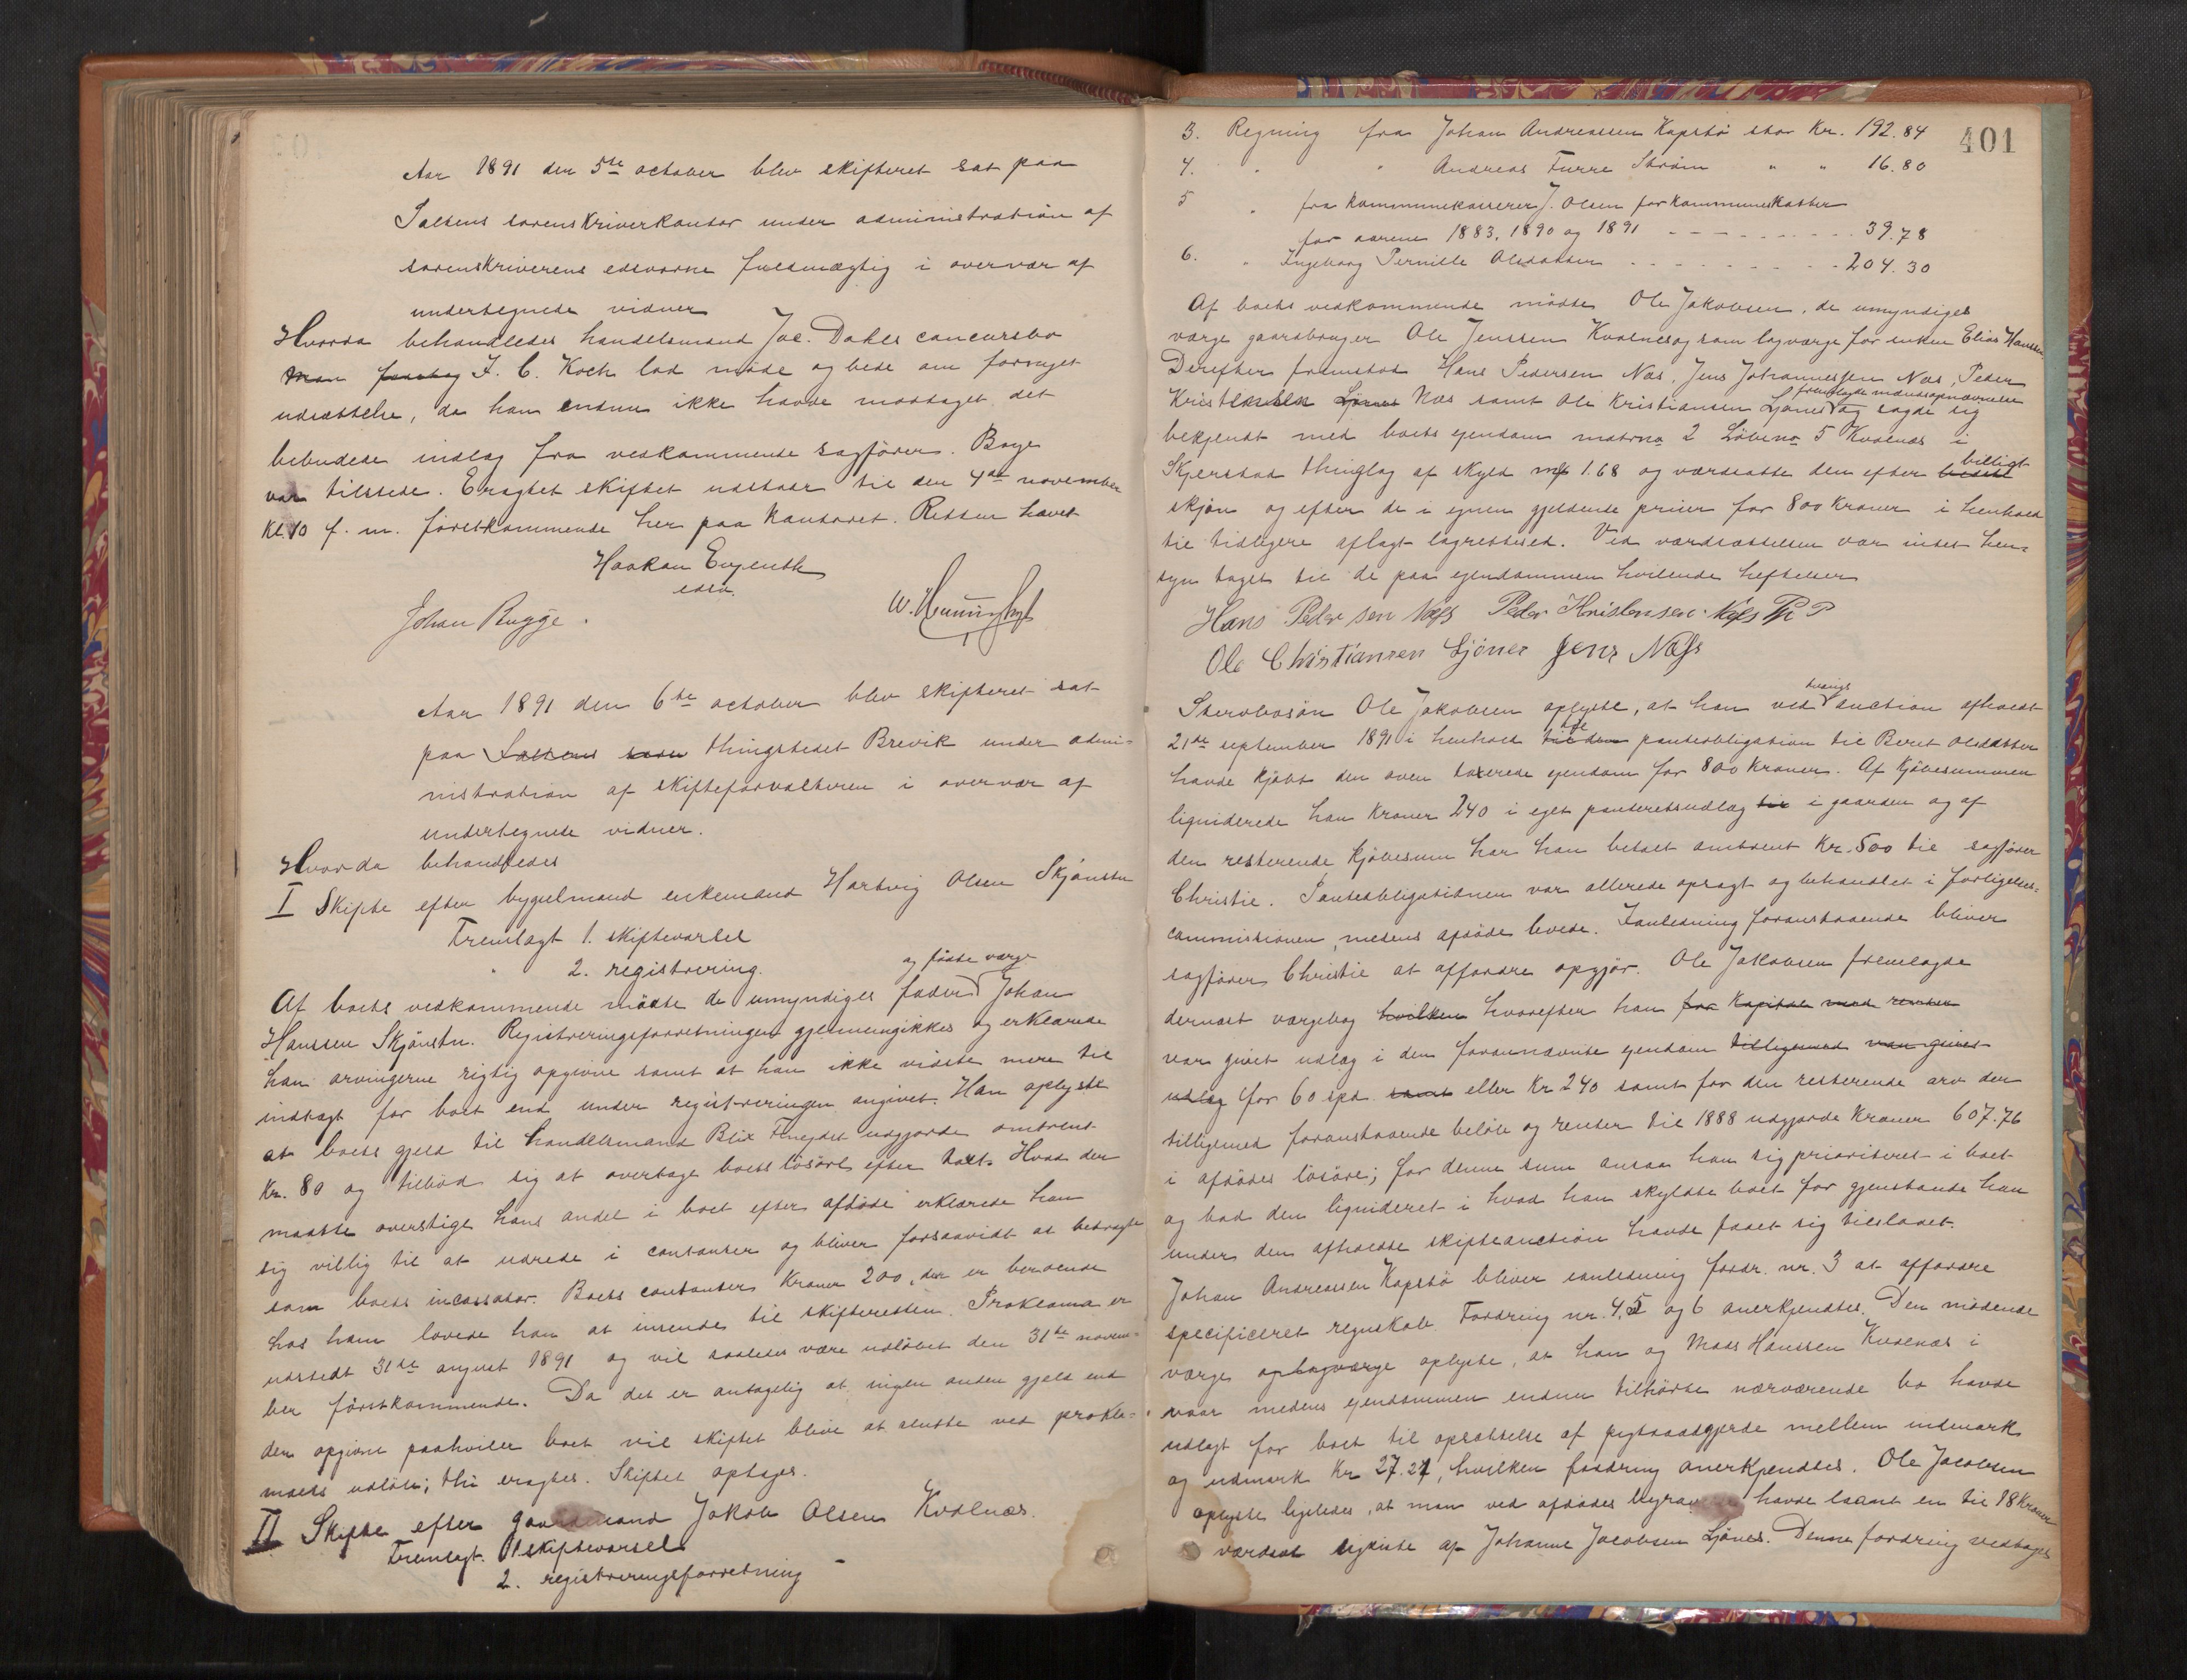 Aar 1891 den 5te october blev skifteret sat paa
Saltens sorenskriverkontor under administration af
sorenskriverens edsvorne fuldmægtig i overvær af
undertegnede vidner
Hvorda behandledes handelsmand Joc. Dahls concursbo
Man F. C. Koch lod møde og bede om fornyet
udsættelse, da han endnu ikke havde modtaget det
bebudede indlæg fra vedkommende sagfører. Boye
var tilstede. Eragtet skiftet udstaar til den 4de november
kl. 10 f. m. førstkommende her paa kontoret. Retten hævet
Haakon Evjenth
edsv.
Johan Bugge.
Aar 1891 den 6te october blev skifteret sat
paa Saltens soren thingstedet Brevik under admi-
nistration af skifteforvalteren i overvær af
undertegnede vidner.
Hvorda behandledes
I Skifte efter bygselmand enkemand Hartvig Olsen Skjønstu
Fremlagt 1. skiftevarsel
" 2. registrering.
og fødte værge
Af boets vedkommende mødte de umyndiges fader Johan
Hanssen Skjønstu. Registreringsforretningen gjennemgikkes og erklærede
han arvingerne rigtig opgivne samt at han ikke vidste mere til
indtægt for boet end under registreringen angivet. Han oplyste
at boets gjeld til handelsmand Blix Finejdet udgjorde omtrent
Kr. 80 og tilbød sig at overtage boets løsøre efter taxt. Hvad der
maatte overstige hans andel i boet efter afdøde erklærede han
sig villig til at udrede i contanter og bliver forsaavidt at betragte
som boets incassator. Boets contanter Kroner 200, der er beroende
hos ham lovede han at indsende til skifteretten. Proklama er
udstedt 31te august 1891 og vil saaledes være udløbet den 31te novem-
ber førstkommende. Da det er antagelig at ingen anden gjeld end
den opgivne paahviler boet vil skiftet blive at slutte ved prokla-
maets udløb; thi eragtes. Skiftet optages.
II Skifte efter gaardmand Jakob Olsen Kvalnæs.
Fremlagt. 1 skiftevarsel
2. registreringsforretning
401
3. Regning fra Johan Andreassen Kapstø stor Kr. 192.84
4. " " Andreas Furre Strøm " " 16.80
5 " fra kommunekasserer J. Olsen for kommuneskatter
for aarene 1883, 1890 og 1891 - - - - - - - - - 39.78
6. " Ingeborg Pernille Olsdatter - - - - - - - - - 204.30
Af boets vedkommende mødte Ole Jakobsen, de umyndiges
værge gaardbruger Ole Jenssen Kvalnes og som lagværge for enken Elias Hanssen
Derefter fremstod Hans Pedersen Næs, Jens Johannessen Næs, Peder
fremlagde mændsopnævnelse
Kristensen Ljønes Næs samt Ole Kristiansen Ljønes og sagde sig
bekjendt med boets ejendom matrno 2 Løbeno 5 Kvalnæs i
billigt
Skjerstad thinglag af skyld mk 1.68 og værdsatte den efter bedste
skjøn og efter de i egnen gjeldende priser for 800 kroner i henhold
til tidligere aflagt lagretted. Ved værdsættelsen var intet hen-
syn taget til de paa ejendommen hvilende heftelser
Hans Pedersen Næss Peder Kristensen Næss
Ole Christiansen Ljønes Jens Næss
tvangs
Stervbosøn Ole Jakobsen oplyste, at han ved auction afholdt
21de september 1891 i henhold til den panteobligation til Beret Olsdatter
havde kjøbt den oven taxerede ejendom for 800 kroner. Af kjøbesummen
liquiderede han kroner 240 i eget panteretsudlæg til i gaarden og af
den resterende kjøbesum har han betalt omtrent Kr. 500 til sagfører
Christie. Panteobligationen var allerede opsagt og behandlet i forligelses-
commissionen, medens afdøde levede. I anledning foranstaaende bliver
sagfører Christie at affordre opgjør. Ole Jakobsen fremlagde
dernæst værgebog hvilken hvorefter han for kapital med renter
var givet udlæg i den forannævnte ejendom tilligemed var givet
udlæg for 60 spd. samt eller Kr 240 samt for den resterende arv der
tilligemed foranstaaende beløb og renter til 1888 udgjorde Kroner 607.76
i afdødes løsøre; for denne sum ansaa han sig prioriteret i boet
og bad den liquideret i hvad han skyldte boet for gjenstande han
under den afholdte skifteauction havde faaet sig tilslaaet.
Johan Andreassen Kapstø bliver i anledning fordr. nr. 3 at affordre
specificeret regnskab. Fordring nr. 4, 5 og 6 anerkjendtes. Den mødende
værge og lagværge oplyste, at han og Mads Hanssen Kvalnæs i
vaar medens ejendommen endnu tilhørte nærværende bo havde
udlagt for boet til opsættelse af pigtraadgjerde mellem indmark
og udmark Kr 27.27, hvilken fordring anerkjendtes. Ole Jacobsen
oplyste ligeledes, at man ved afdødes begravelse havde laant en til 18 Kroner
værdsat ligkiste af Johanne Jacobsen Ljønes. Denne fordring vedtoges